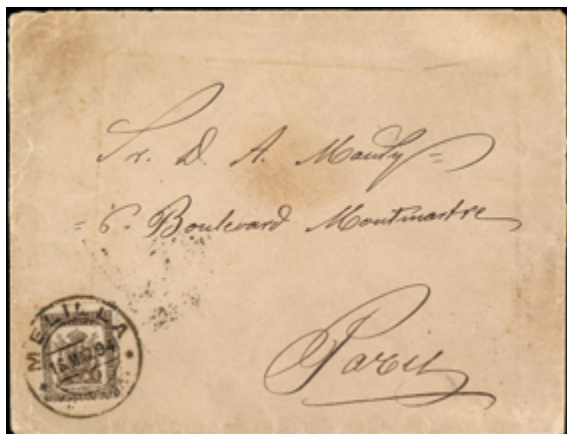 Sr. D. A. Maury=
= 6. Boulevard Montmartre
Paris
MELILLA